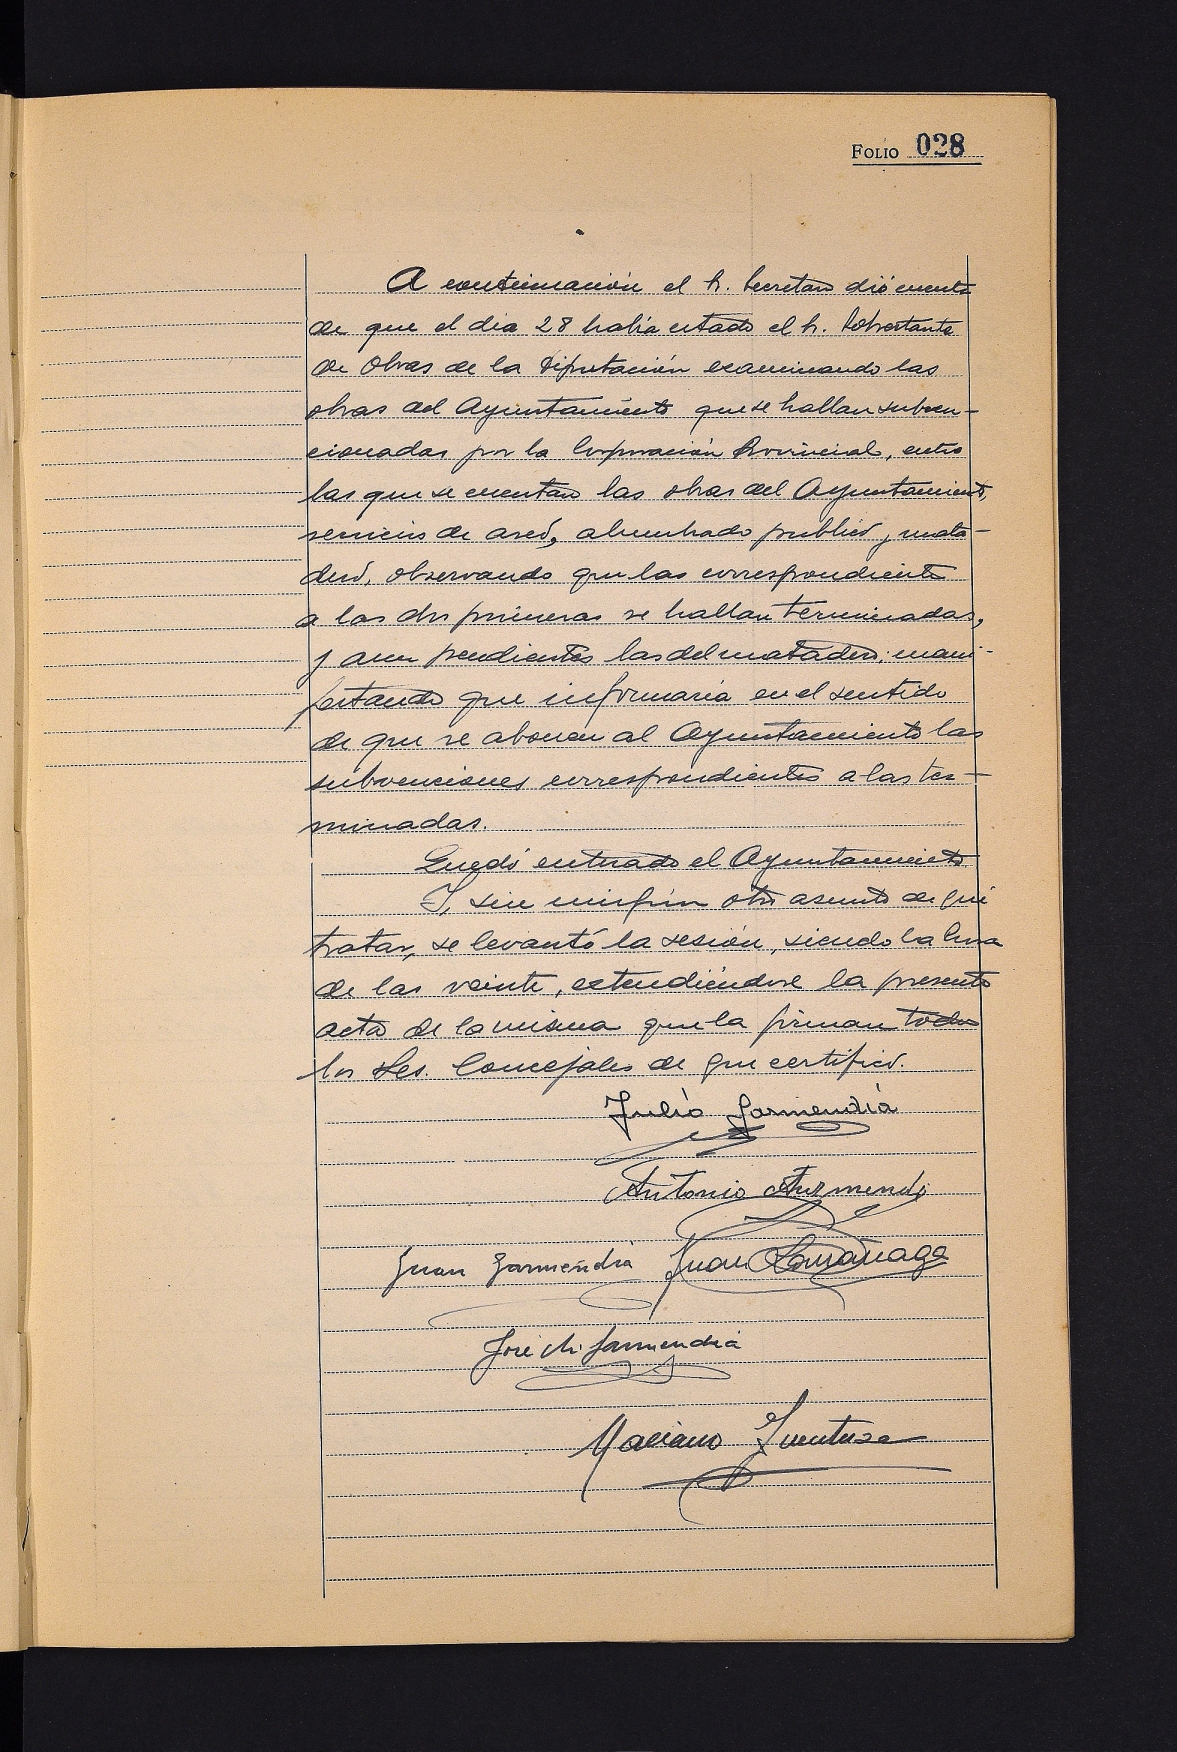 FOLIO 028
A continuación el Sr. Secretario dió cuenta
de que el dia 28 habia estado el Sr. Sobrestante
de Obras de la Diputación examinando las
obras del Ayuntamiento que se hallan subven-
cionadas por la Corporación Provincial, entre
las que se cuentan las obras del Ayuntamiento,
servicios de aseo, alumbrado publico y mata-
dero, observando que las correspondiente
a las dos primeras se hallan terminadas,
y aun pendientes las del matadero; mani-
festando que informaria en el sentido
de que se abonen al Ayuntamiento las
subvenciones correspondientes a las ter-
minadas.
Quedó enterado el Ayuntamiento
Y, sin ningún otro asunto de que
tratar, se levantó la sesión, siendo la hora
de las veinte, extendiéndose la presente
acta de la misma que la firman todos
los Sres. Concejales de que certifico.
Julio Garmendia
Antonio Aurmendi
Juan Garmendia Juan Larrañaga
José M. Garmendia
Mariano